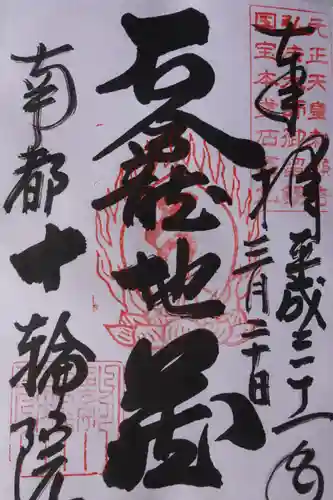 奉拝
平成二十一年
三月二十日
石龕地蔵
南都十輪院
元正天皇勅願
弘法大師御
国宝本堂石